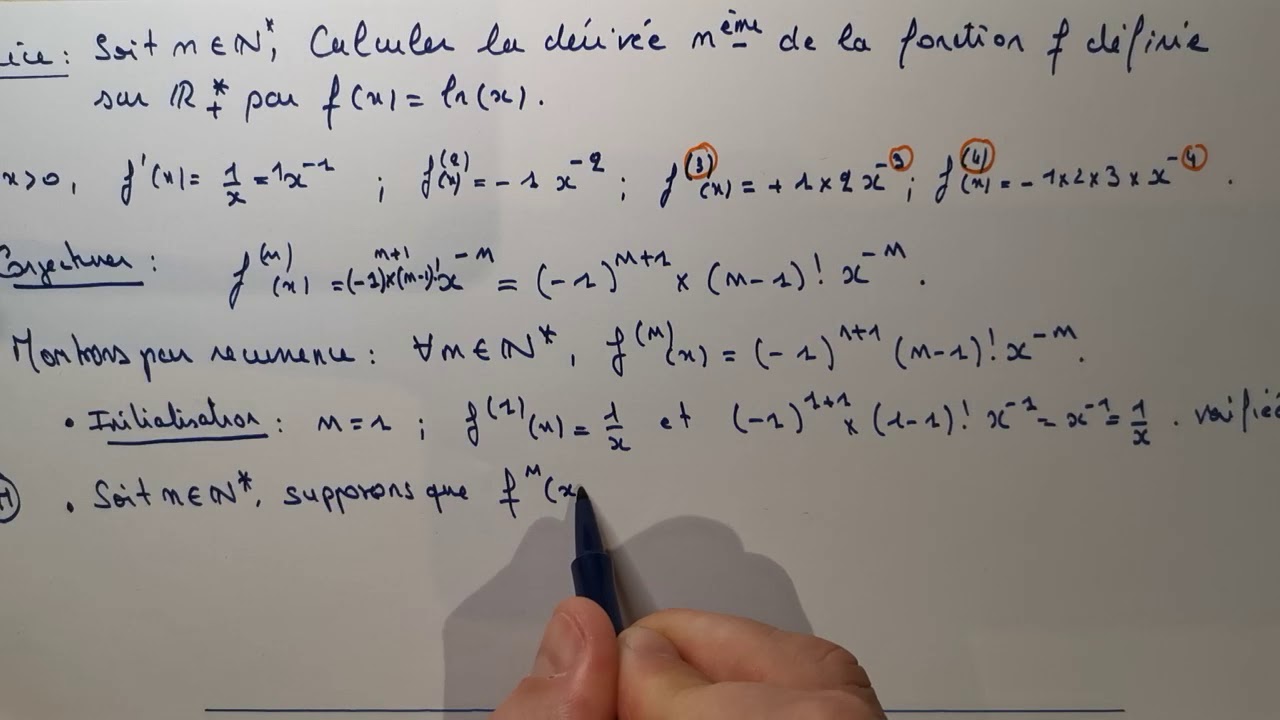 ice : Soit n ∈ ℕ*, Calculer la dérivée nème de la fonction f définie
sur ℝ*₊ par f(x) = ln(x).
x>0, f'(x) = 1/x = 1x⁻¹ ; f⁽²⁾(x) = - 1 x⁻² ; f⁽³⁾(x) = + 1 × 2 x⁻³ ; f⁽⁴⁾(x) = - 1×2×3 × x⁻⁴ .
Conjecturer : f⁽ⁿ⁾(x) = (-1)ⁿ⁺¹×(n-1)! x⁻ⁿ = (-1)ⁿ⁺¹ × (n-1)! x⁻ⁿ .
Montrons par récurrence : ∀n ∈ ℕ*, f⁽ⁿ⁾(x) = (-1)ⁿ⁺¹ (n-1)! x⁻ⁿ.
• Initialisation : n = 1 ; f⁽¹⁾(x) = 1/x et (-1)¹⁺¹ × (1-1)! x⁻¹ = x⁻¹ = 1/x . vérifiée
H • Soit n ∈ ℕ*, supposons que fⁿ(x